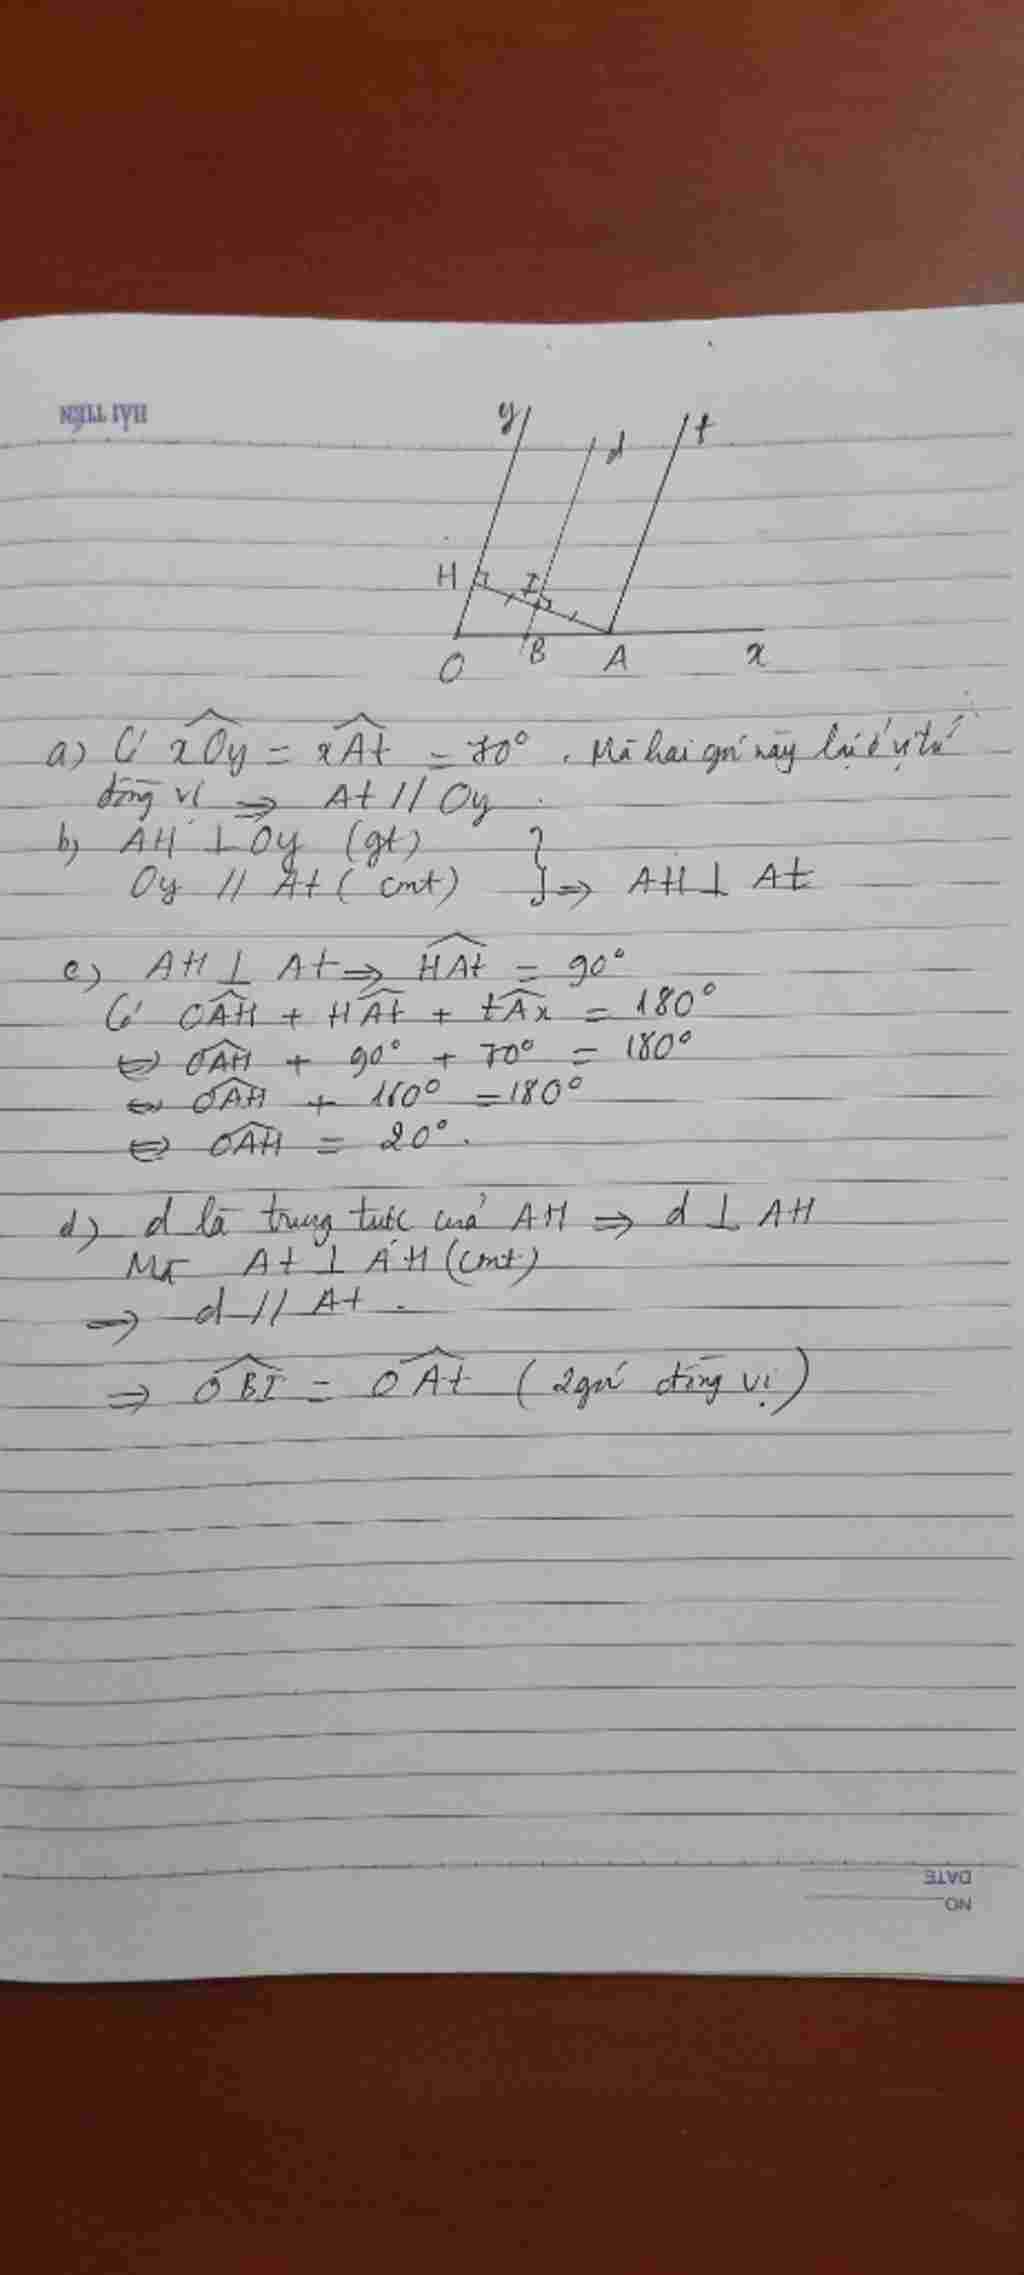 HẢI TIẾN
y
d
t
H
I
O
B
A
x
a) Có xOy = xAt = 70°. Mà hai góc này lại ở vị trí
đồng vị ⇒ At // Oy
b) AH ⊥ Oy (gt)
Oy // At (cmt) } ⇒ AH ⊥ At
c) AH ⊥ At ⇒ HAt = 90°
Có OAH + HAt + tAx = 180°
⇔ OAH + 90° + 70° = 180°
⇔ OAH + 160° = 180°
⇔ OAH = 20°.
d) d là trung trực của AH ⇒ d ⊥ AH
Mà At ⊥ AH (cmt)
⇒ d // At.
⇒ OBI = OAt (2 góc đồng vị)
DATE
NO